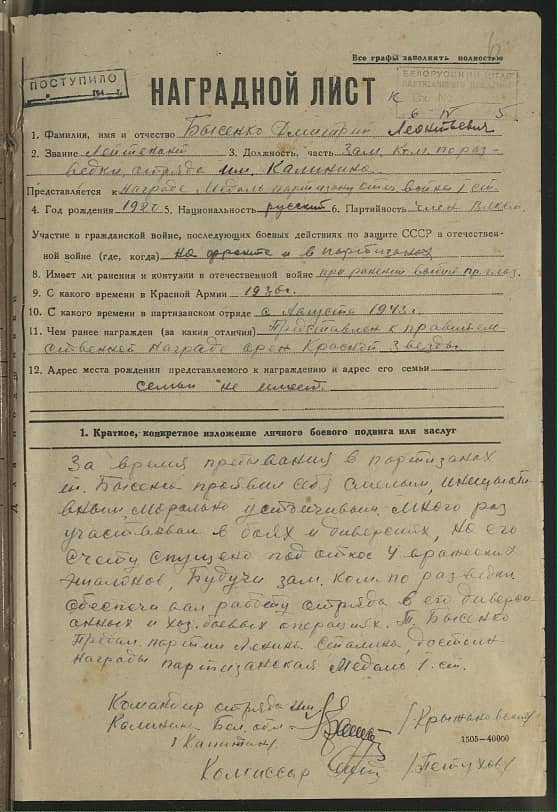 6
Все графы заполнить полностью
ПОСТУПИЛО
БЕЛОРУССКИЙ ШТАБ
ПАРТИЗАНСКОГО ДВИЖЕНИЯ
НАГРАДНОЙ ЛИСТ
1. Фамилия, имя и отчество Бысенко Дмитрий Леонтьевич
2. Звание Лейтенант 3. Должность, часть Зам. Ком. по раз-
ведки, отряда им. Калинина
Представляется к Награде Медаль партизану отеч. войны 1 ст.
4. Год рождения 1920 5. Национальность русский 6. Партийность член ВКП(б)
Участие в гражданской войне, последующих боевых действиях по защите СССР в отечествен-
ной войне (где, когда) на фронте и в партизанах
8. Имеет ли ранения и контузии в отечественной войне
9. С какого времени в Красной Армии 1936 г.
10. С какого времени в партизанском отряде с Августа 1943 г.
11. Чем ранее награжден (за какия отличия) Представлен к правитель
ственной Награде орен Красной Звезды
12. Адрес места рождения представляемого к награждению и адрес его семьи
семьи не имеет.
1. Краткое, конкретное изложение личного боевого подвига или заслуг
За время пребывания в партизанах
т. Бысенко проявил себя смелым, инициати
вным, морально устойчивым. Много раз
участвовал в боях и диверсиях, на его
счету спущено под откос 4 вражеских
эшалонов, Будучи зам. ком по разведки
обеспечивал работу отряда в его диверси
онных и хоз. боевых операциях. Т. Бысенко
Предан партии Ленина Сталина, достоин
Награды партизанская Медаль 1 ст.
Командир отряда им.
Калинина Бел. обл.
Капитан /Крыжановский/
1505—40000
Комиссар /Петухов/